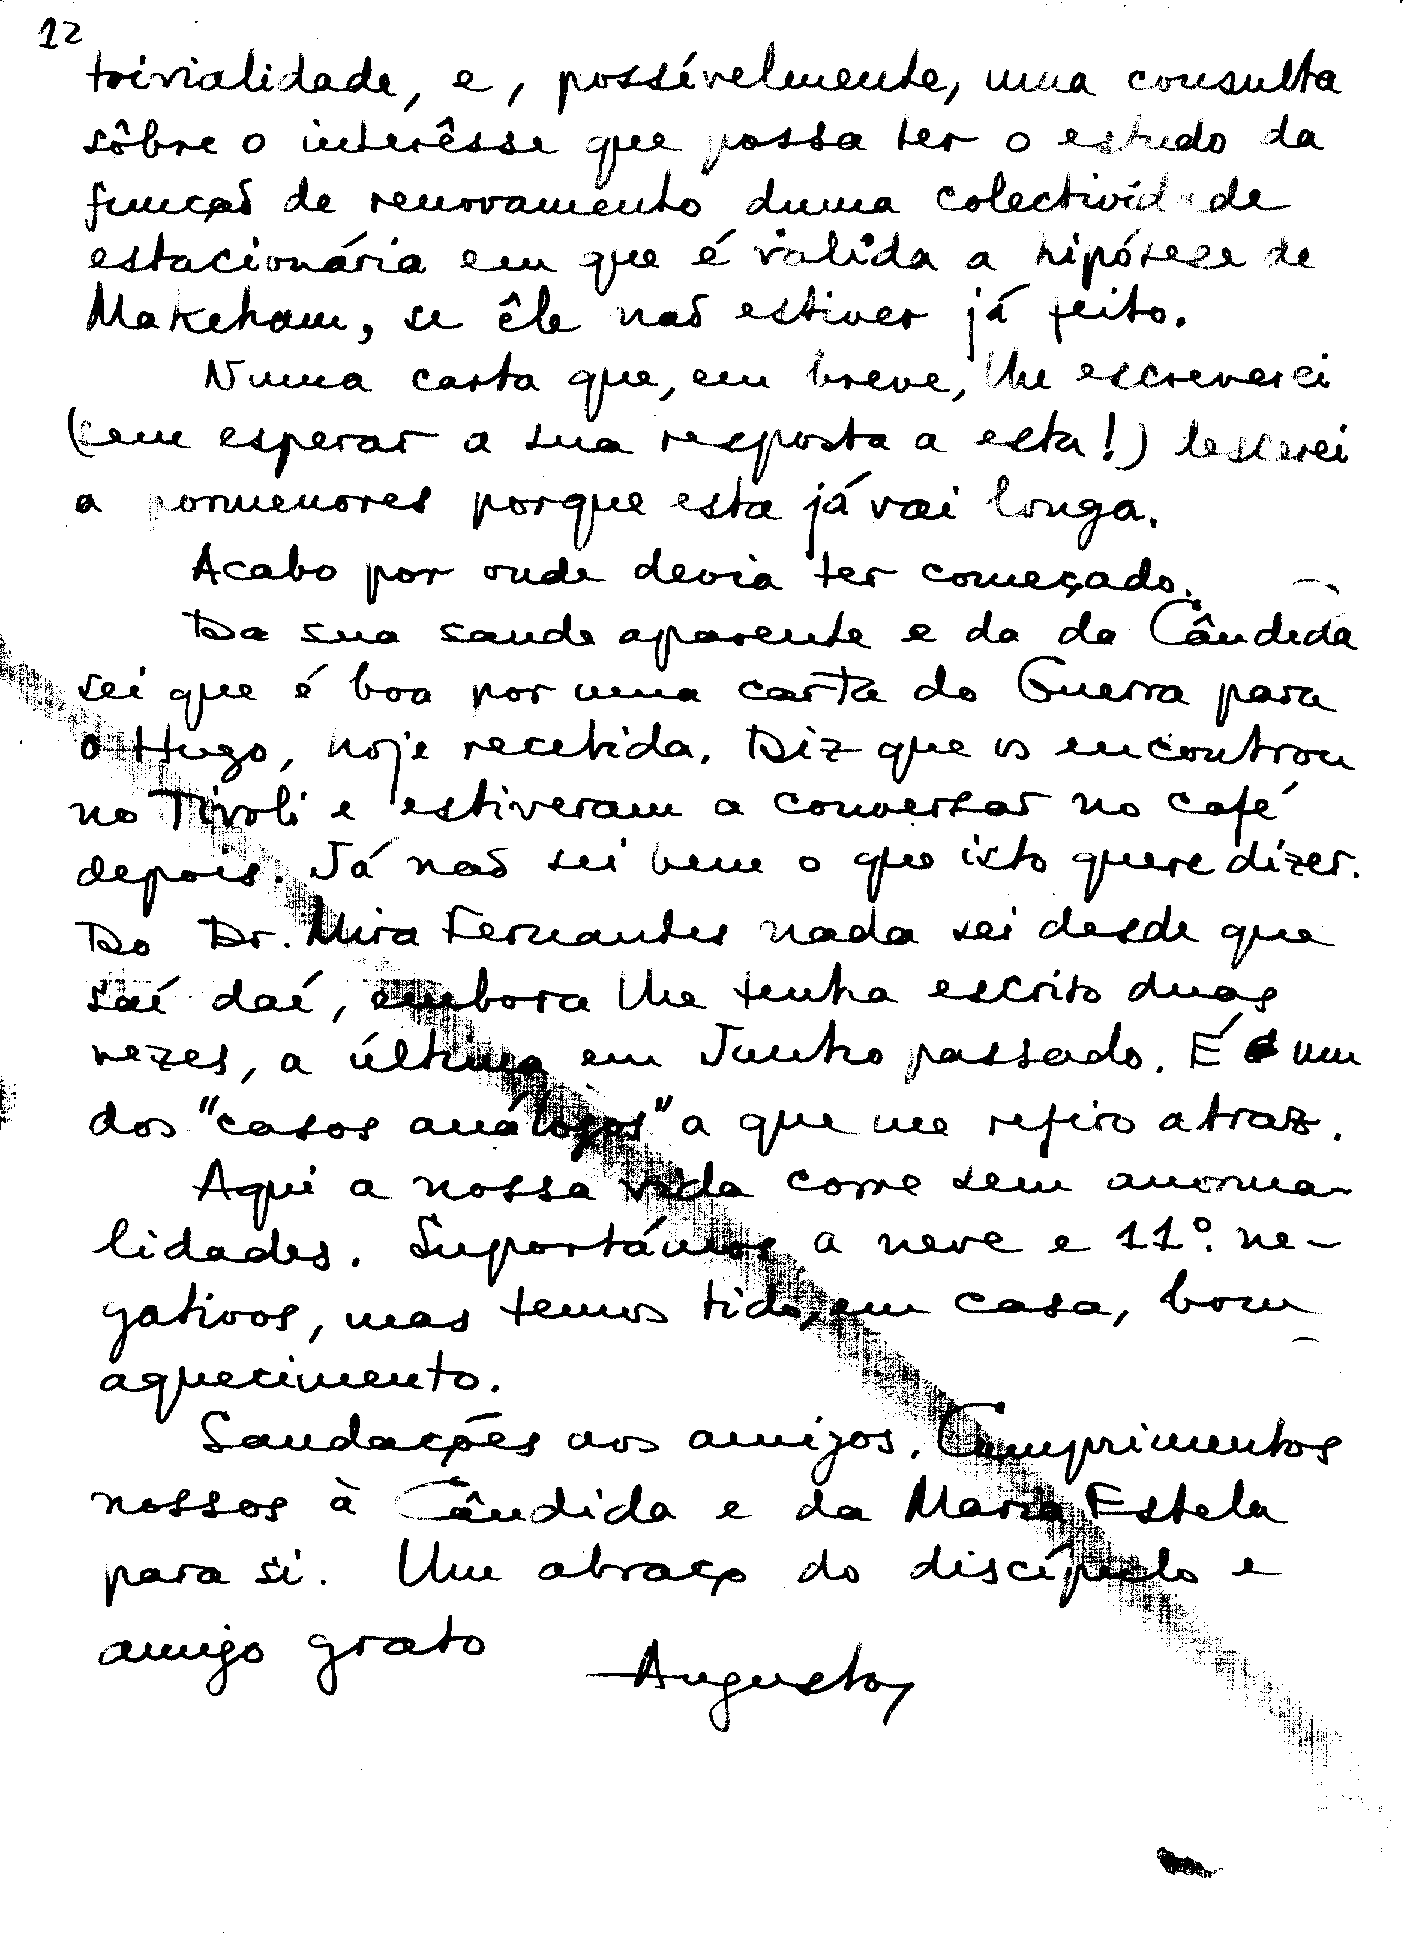 12
trivialidade, e, possívelmente, uma consulta
sôbre o interêsse que possa ter o estudo da
função de renovamento duma colectividade
estacionária em que é válida a hipótese de
Makeham, se êle não estiver já feito.
Numa carta que, em breve, lhe escreverei
(sem esperar a sua resposta a esta!) descerei
a pormenores porque esta já vai longa.
Acabo por onde devia ter começado.
Da sua saude aparente e da da Cândida
sei que é boa por uma carta do Guerra para
o Hugo, hoje recebida. Diz que os encontrou
no Tívoli e estiveram a conversar no café
depois. Já não sei bem o que isto quere dizer.
Do Dr. Mira Fernandes nada sei desde que
saí daí, embora lhe tenha escrito duas
vezes, a última em Junho passado. É um
dos "casos análogos" a que me refiro atraz.
Aqui a nossa vida corre sem anorma-
lidades. Suportámos a neve e 11º. ne-
gativos, mas temos tido, em casa, bom
aquecimento.
Saudações aos amigos. Cumprimentos
nossos à Cândida e da Maria Estela
para si. Um abraço do discípulo e
amigo grato
Augusto